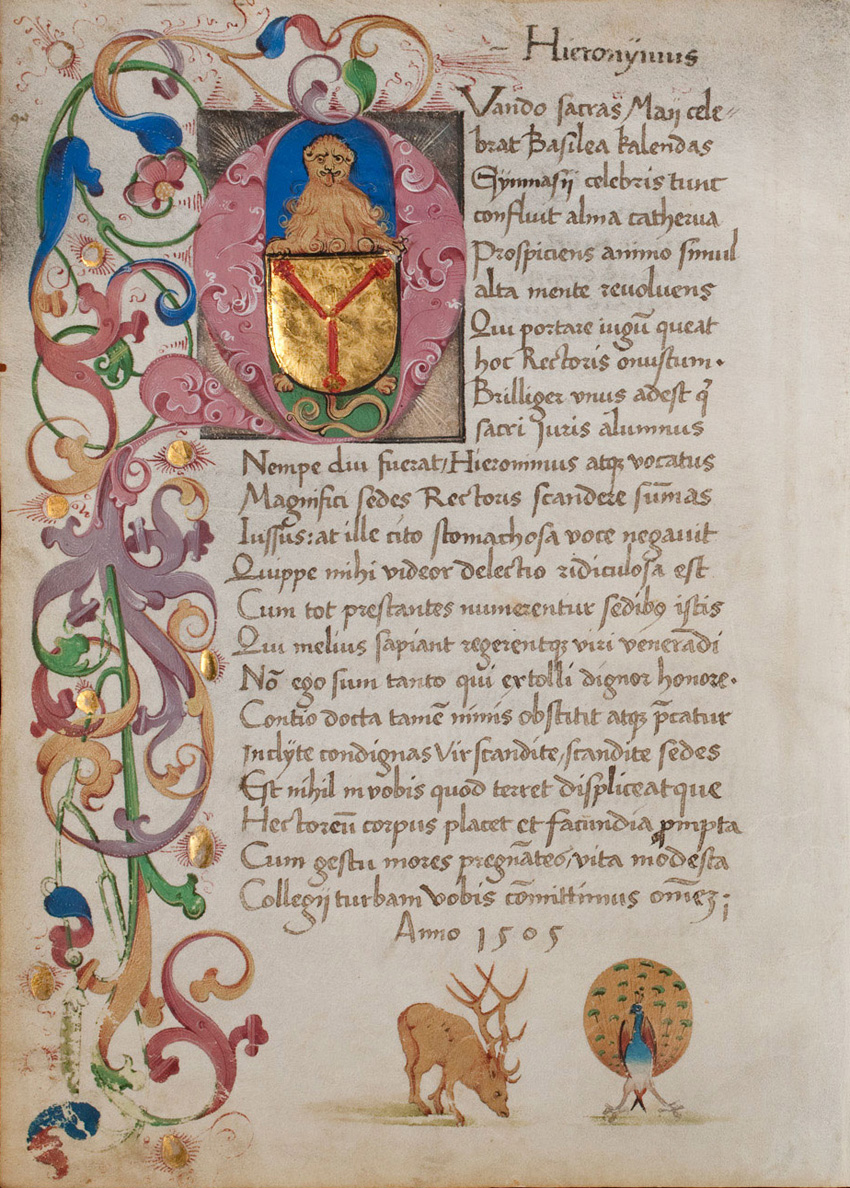 Hieronymus
Vando sacras Maij cele-
brat Basilea kalendas
Gymnasij celebris tunc
confluit alma catherua
Prospiciens animo simul
alta mente reuoluens
Qui portare iugū queat
hoc Rectoris onustum.
Brilliger vnus adest q̄
sacri Juris alumnus
Nempe diu fuerat, Hieronimus atqꝫ vocatus
Magnifici sedes Rectoris scandere sūmas
Iussus: at ille cito stomachosa voce negauit
Quippe mihi videor delectio ridiculosa est
Cum tot prestantes numerentur sedibꝰ istis
Qui melius sapiant regerentqꝫ viri venerādi
Nō ego sum tanto qui extolli dignor honore.
Contio docta tamē nimis obstitit atqꝫ p̄catur
Inclÿte condignas Vir scandite, scandite sedes
Est nihil in vobis quod terret displiceatque
Hectoreū corpus placet et facundia prompta
Cum gestu mores pregnātes, vita modesta
Collegij turbam vobis cōmittimus omēꝫ;
Anno 1505